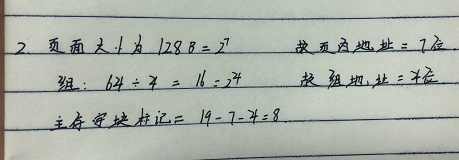 2. 页面大小为 128B = 2⁷ 故页内地址 = 7位.
组: 64 ÷ 4 = 16 = 2⁴ 故组地址 = 4位
主存字块标记 = 19 - 7 - 4 = 8